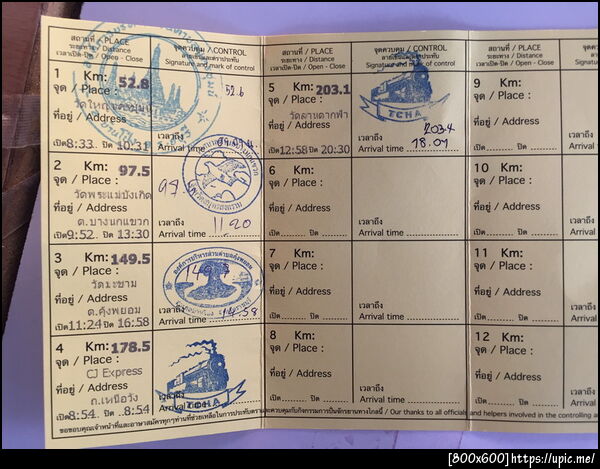 สถานที่ / PLACE
ระยะทาง / Distance
เวลาเปิด-ปิด / Open - Close
จุดควบคุม / CONTROL
ลายเซ็นและตราประทับ
Signature and mark of control
สถานที่ / PLACE
ระยะทาง / Distance
เวลาเปิด-ปิด / Open - Close
จุดควบคุม / CONTROL
ลายเซ็นและตราประทับ
Signature and mark of control
สถานที่ / PLACE
ระยะทาง / Distance
เวลาเปิด-ปิด / Open - Close
1 Km: 52.8
จุด / Place :
ที่อยู่ / Address
เปิด 8:33 ปิด 10:31
52.6
เวลาถึง
Arrival time
2 Km: 97.5
จุด / Place :
วัดพระแม่บังเกิด
ที่อยู่ / Address
ต.บางนกแขวก
เปิด 9:52 ปิด 13:30
97.
เวลาถึง 11 20
Arrival time
3 Km: 149.5
จุด / Place :
วัดมะขาม
ที่อยู่ / Address
ต.คุ้งพยอม
เปิด 11:24 ปิด 16:58
องค์การบริหารส่วนตำบลคุ้งพยอม
เวลาถึง
Arrival time 14.58
4 Km: 178.5
จุด / Place :
CJ Express
ที่อยู่ / Address
ถ.เหนือวัง
เปิด 8:54 ปิด 8:54
TCHA
เวลาถึง
Arrival time
5 Km: 203.1
จุด / Place :
ที่อยู่ / Address
เปิด 12:58 ปิด 20:30
TCHA
203.4
เวลาถึง
Arrival time 18.07
6 Km:
จุด / Place :
ที่อยู่ / Address
เปิด ปิด
เวลาถึง
Arrival time
7 Km:
จุด / Place :
ที่อยู่ / Address
เปิด ปิด
เวลาถึง
Arrival time
8 Km:
จุด / Place :
ที่อยู่ / Address
เปิด ปิด
เวลาถึง
Arrival time
9 Km:
จุด / Place :
ที่อยู่ / Address
เปิด ปิด
10 Km:
จุด / Place :
ที่อยู่ / Address
เปิด ปิด
11 Km:
จุด / Place :
ที่อยู่ / Address
เปิด ปิด
12 Km:
จุด / Place :
ที่อยู่ / Address
เปิด ปิด
ขอขอบคุณเจ้าหน้าที่และอาสาสมัครทุกๆท่านที่ช่วยเหลือในการประทับตราและควบคุมกิจกรรมการปั่นจักรยานทางไกลนี้ / Our thanks to all officials and helpers involved in the controlling a
[800x600]https://upic.me/